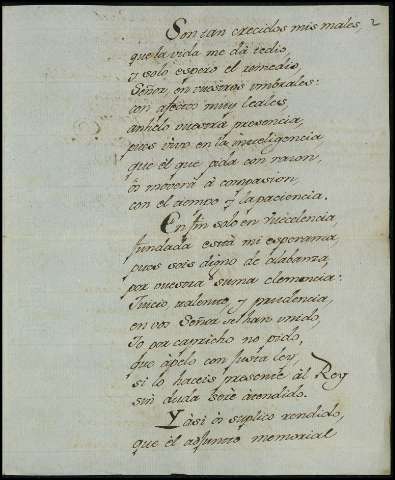 2
Son tan crecidos mis males,
que la vida me dà tedio,
y solo espero el remedio,
Señor, en vuestros umbrales:
con afecto muy leales,
anhelo vuestra presencia,
pues vivo en la inteligencia,
que èl que pida con razon,
òs moverà à compasion,
con el tiempo y la paciencia.
En fin solo en Vuecelencia,
fundada està mi esperanza,
pues sois digno de alabanza,
por vuestra suma clemencia:
Juicio, talento, y prudencia,
en vos Señor se han unido,
Yo por capricho no pido,
que àpelo con justa ley,
si lo haceis presente àl Rey
sin duda serè àtendido.
Y àsi òs suplico rendido,
que èl adjunto memorial